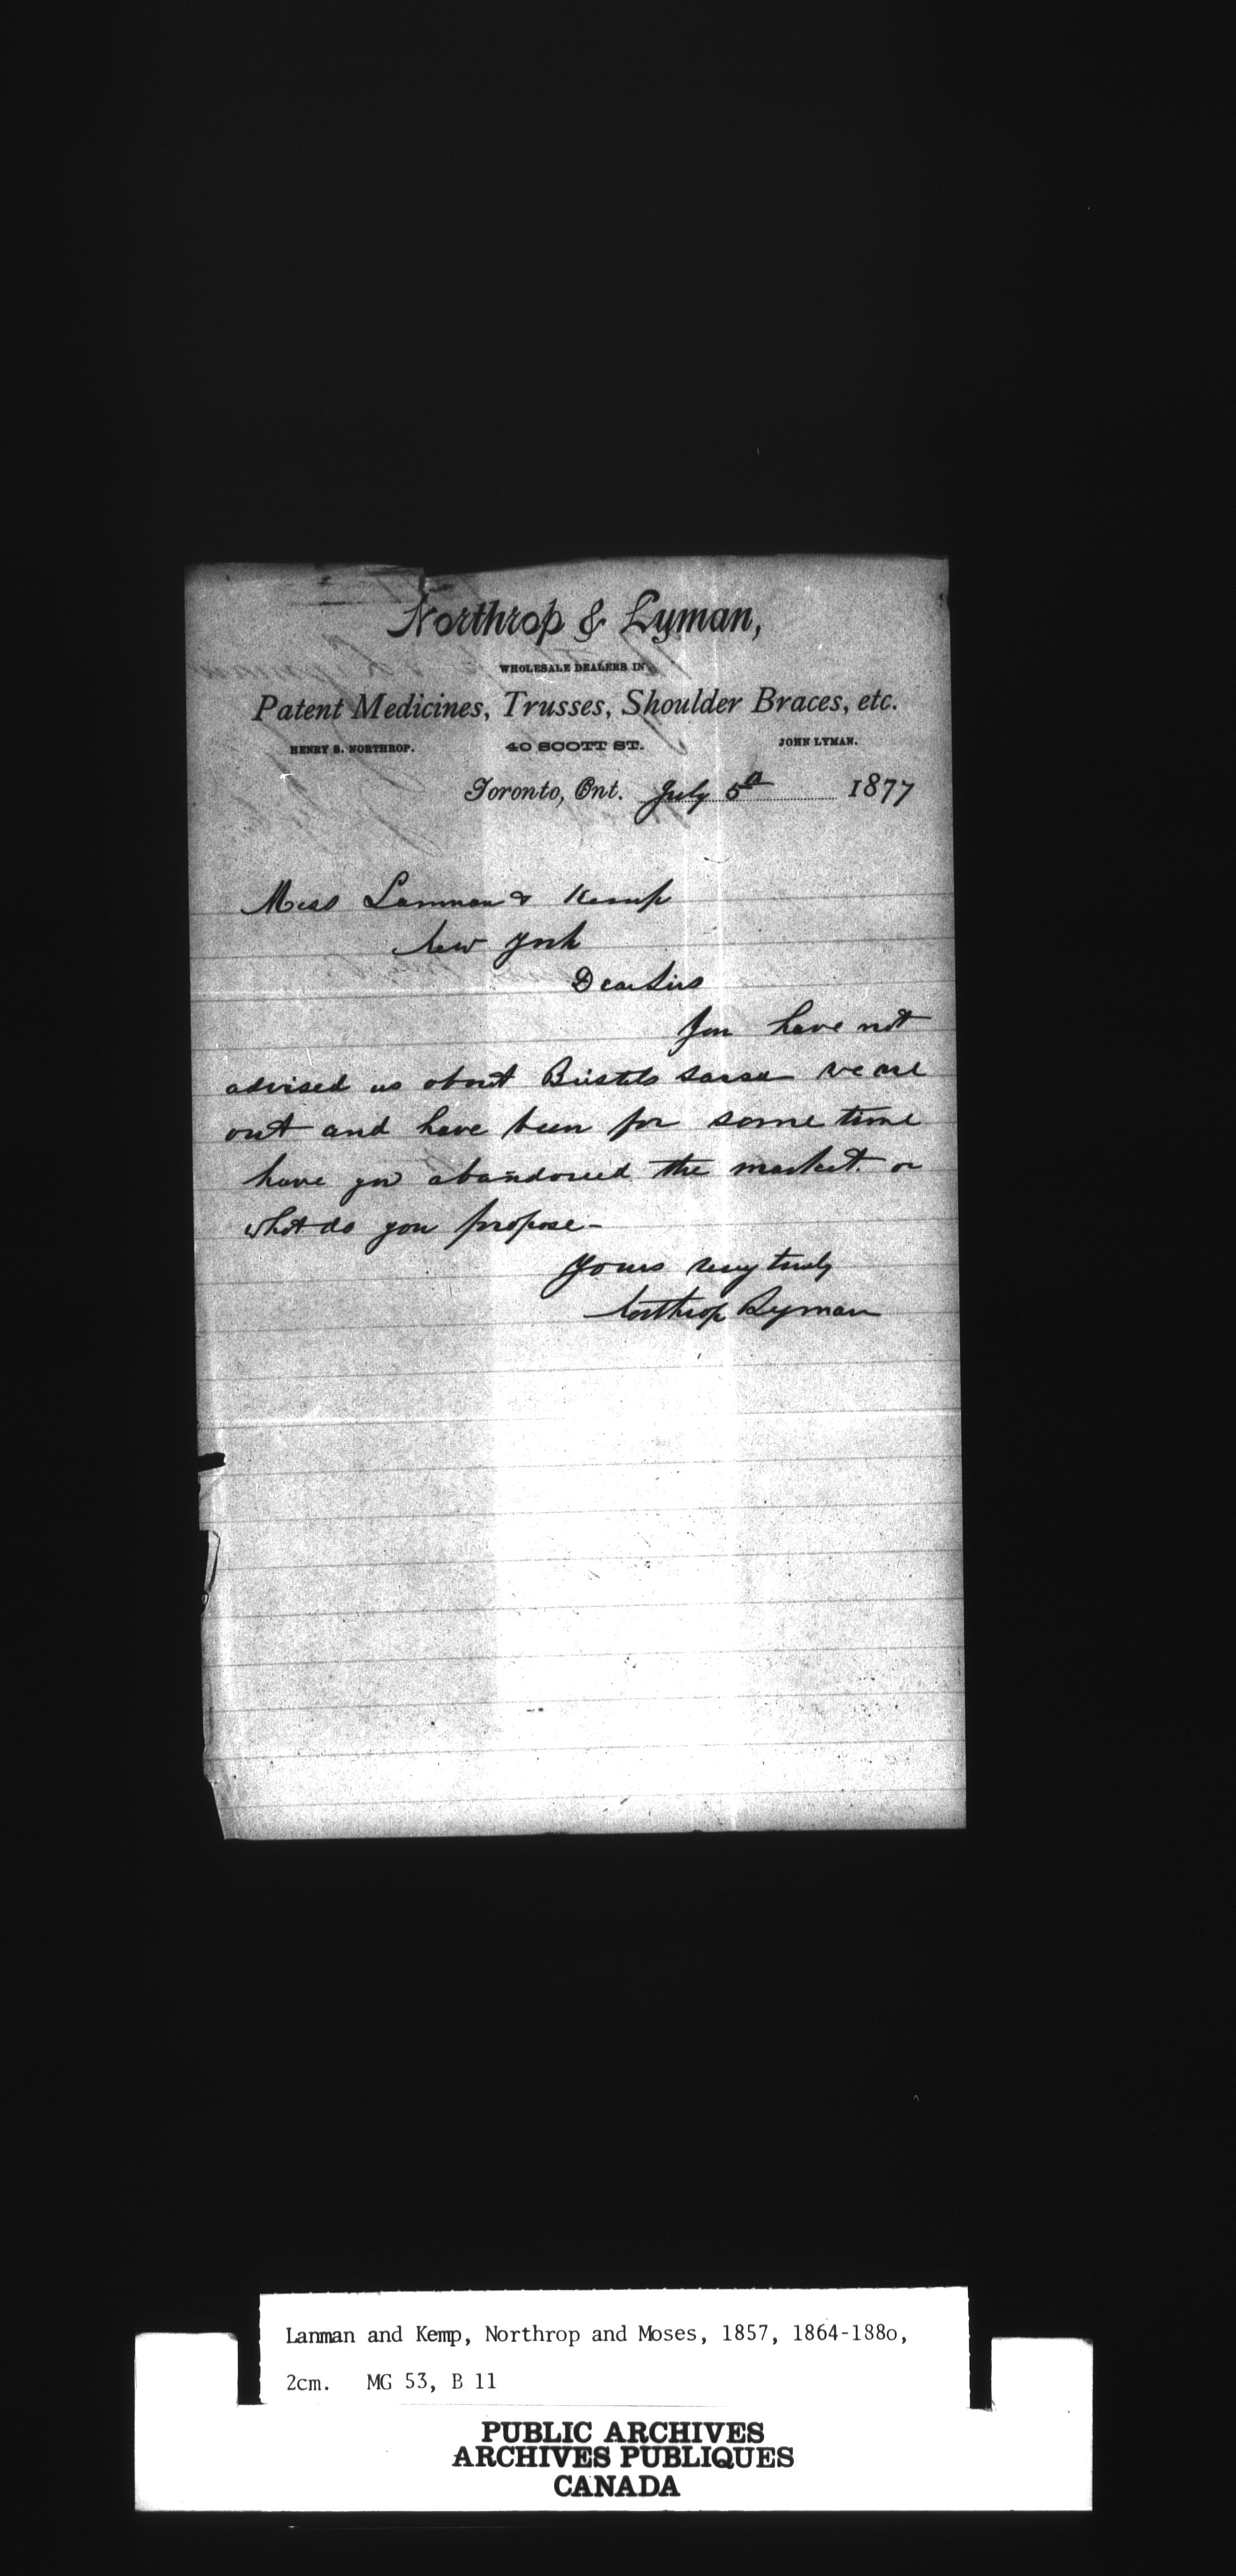 Northrop & Lyman,
WHOLESALE DEALERS IN
Patent Medicines, Trusses, Shoulder Braces, etc.
HENRY S. NORTHROP. 40 SCOTT ST. JOHN LYMAN.
Toronto, Ont. July 5th 1877
Mess Lanman & Kemp
New York
Dear Sirs
You have not
advised us about Bristols Sarsa we are
out and have been for some time
have you abandoned the market or
what do you propose -
Yours very truly
Northrop Lyman
Lanman and Kemp, Northrop and Moses, 1857, 1864-1880,
2cm. MG 53, B 11
PUBLIC ARCHIVES
ARCHIVES PUBLIQUES
CANADA